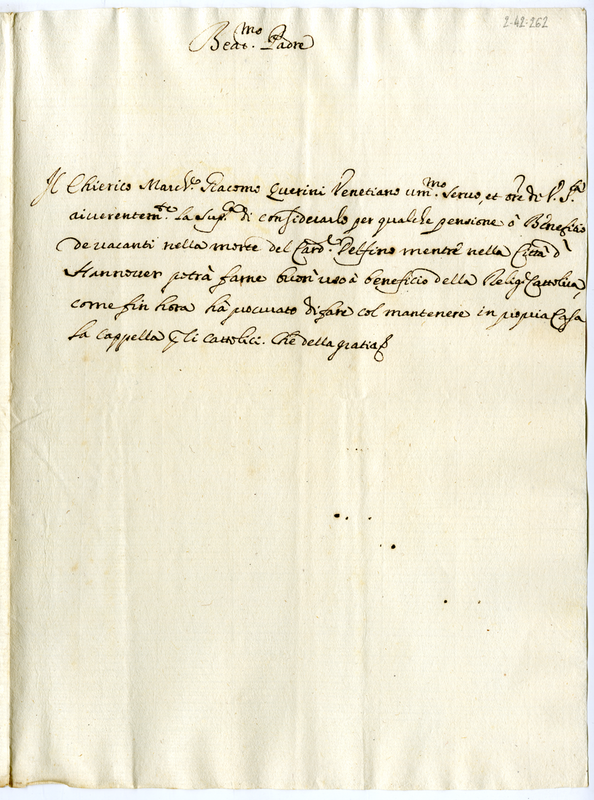 2-42-262
Beat.mo Padre
Il Chierico March.e Giacomo Querini Venetiano um.mo Servo, et ore di V. S.tà
riverentem.te la Sup.ca di considerarlo per qualche pensione ò Benefitio
de vacanti nella morte del Card.l Delfino mentre nella Città d'
Hannover potrà farne buon uso à beneficio della Relig.e Cattolica,
come fin hora hà procurato di fare col mantenere in propria Casa
la Cappella p li Cattolici. Che della gratia